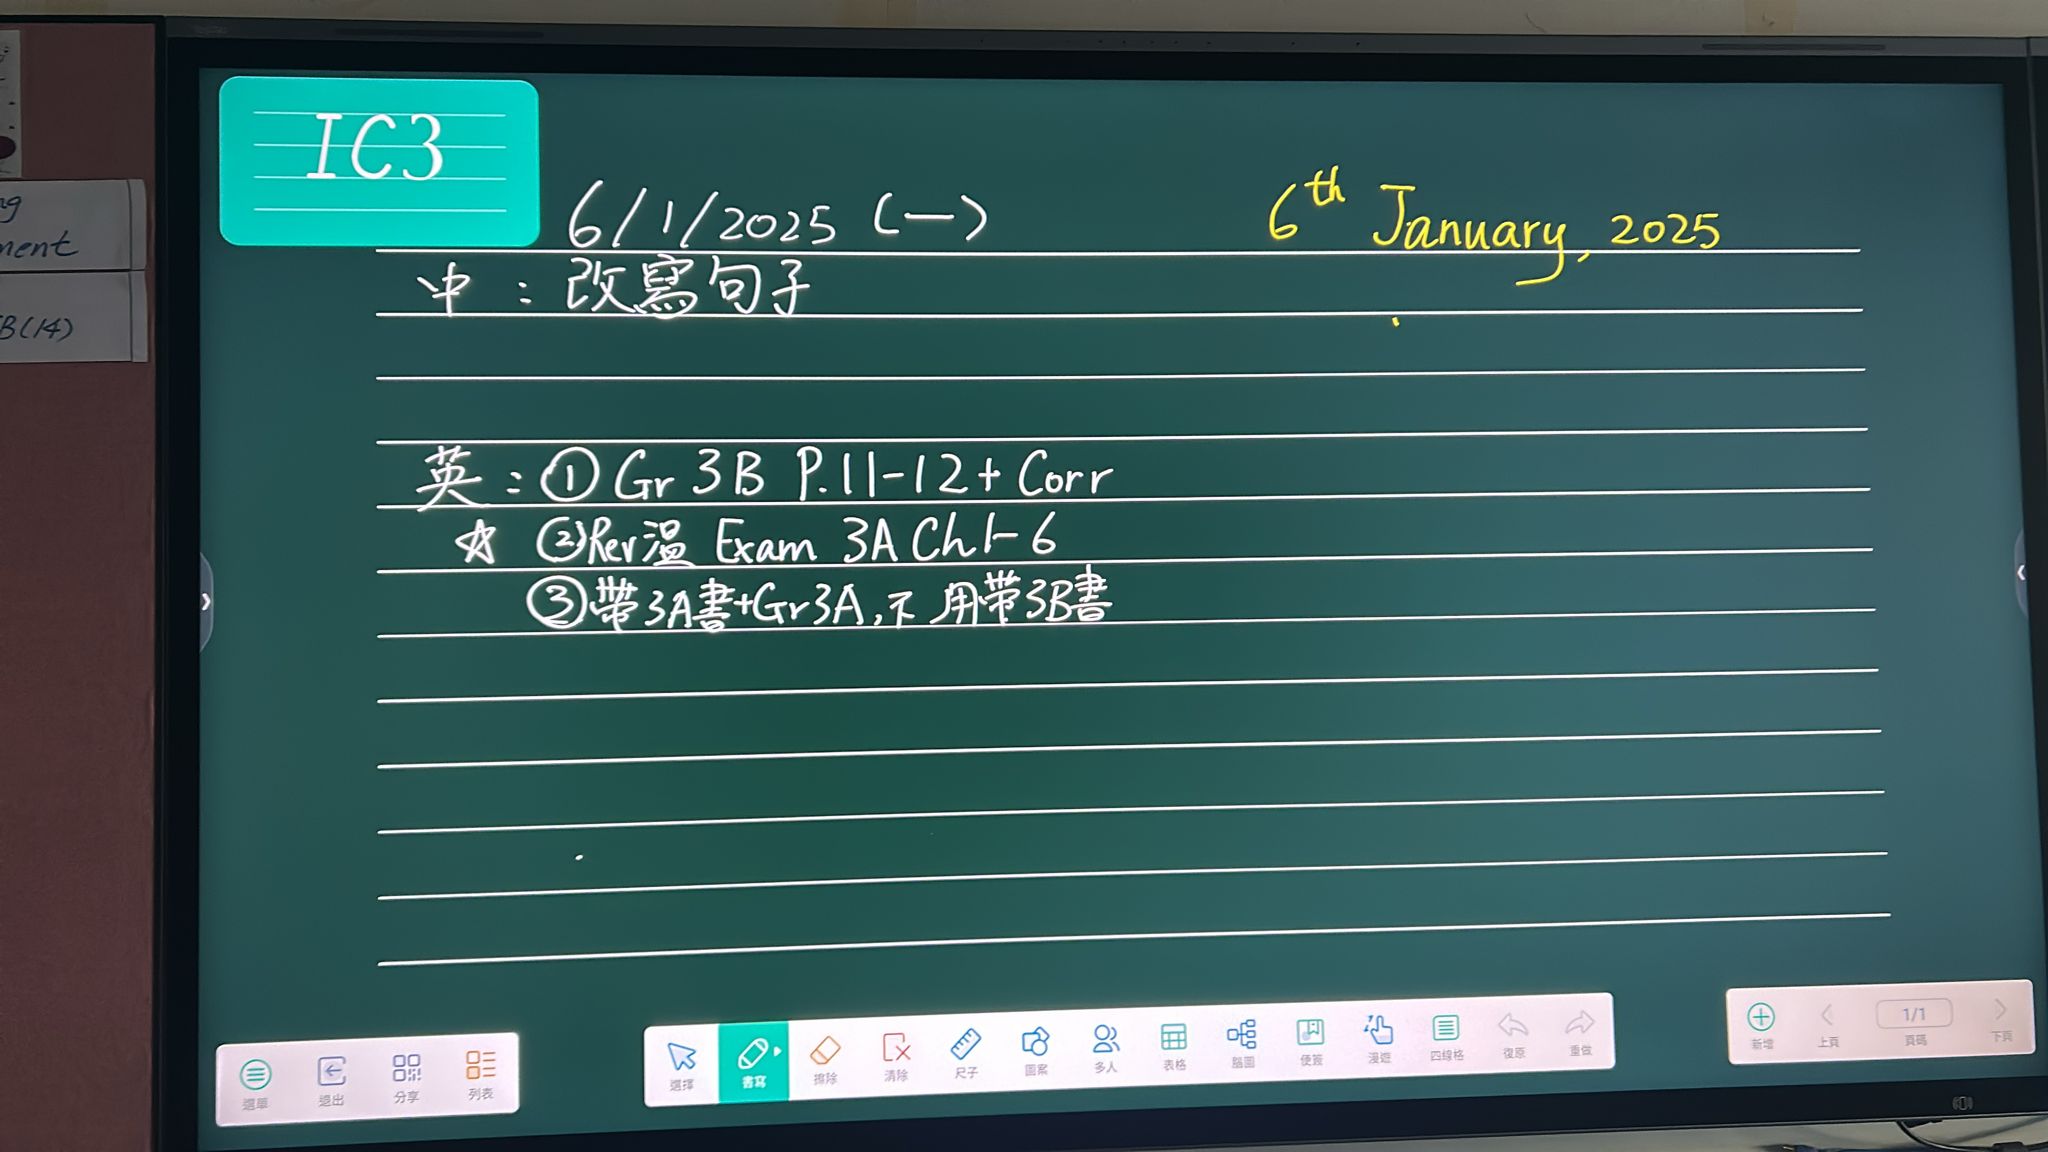 IC3
6/1/2025 (一)
6th January, 2025
中：改寫句子
英：①Gr 3B P.11-12+ Corr
☆ ②Rev溫 Exam 3A Ch1-6
③帶3A書+Gr3A,不用帶3B書
ment
B(14)
選單 退出 分享 列表
選擇 書寫 擦除 清除 尺子 圖案 多人 表格 腦圖 便簽 漫遊 四線格 復原 重做
新增 上頁 1/1 頁碼 下頁